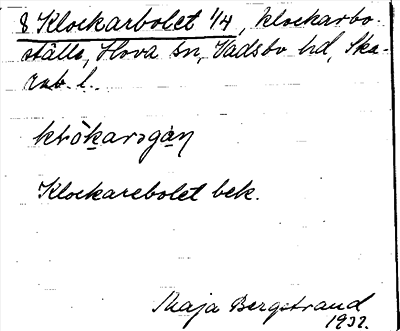 8 Klockarbolet 1/4, klockarbo-
ställe, Hova sn, Vadsbo hd, Ska-
rab. l.
Klockarebolet bek.
Maja Bergstrand
1932.